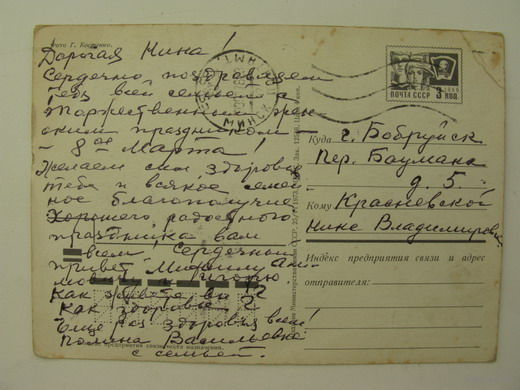 Фото Г. Костенко.
Дорогая Нина!
Сердечно поздравляем
Тебя всей семьей с
Торжественным жен-
ским праздником —
— 8ое Марта!
Желаем сил здоровья
тебе и всякое семей-
ное благополучие
Хорошего, радостного
праздника вам
всем. Сердечный
привет Михаилу
Игорю
Как здоровье
Еще раз здоровья всем!
Полина Васильевна
с семьей.
МИНСК
ПОЧТА СССР
3 КОП.
Куда г. Бобруйск
пер. Баумана
д. 5
Кому Красневской
Нине Владимировне
Индекс предприятия связи и адрес
отправителя:
предприятия связи места назначения